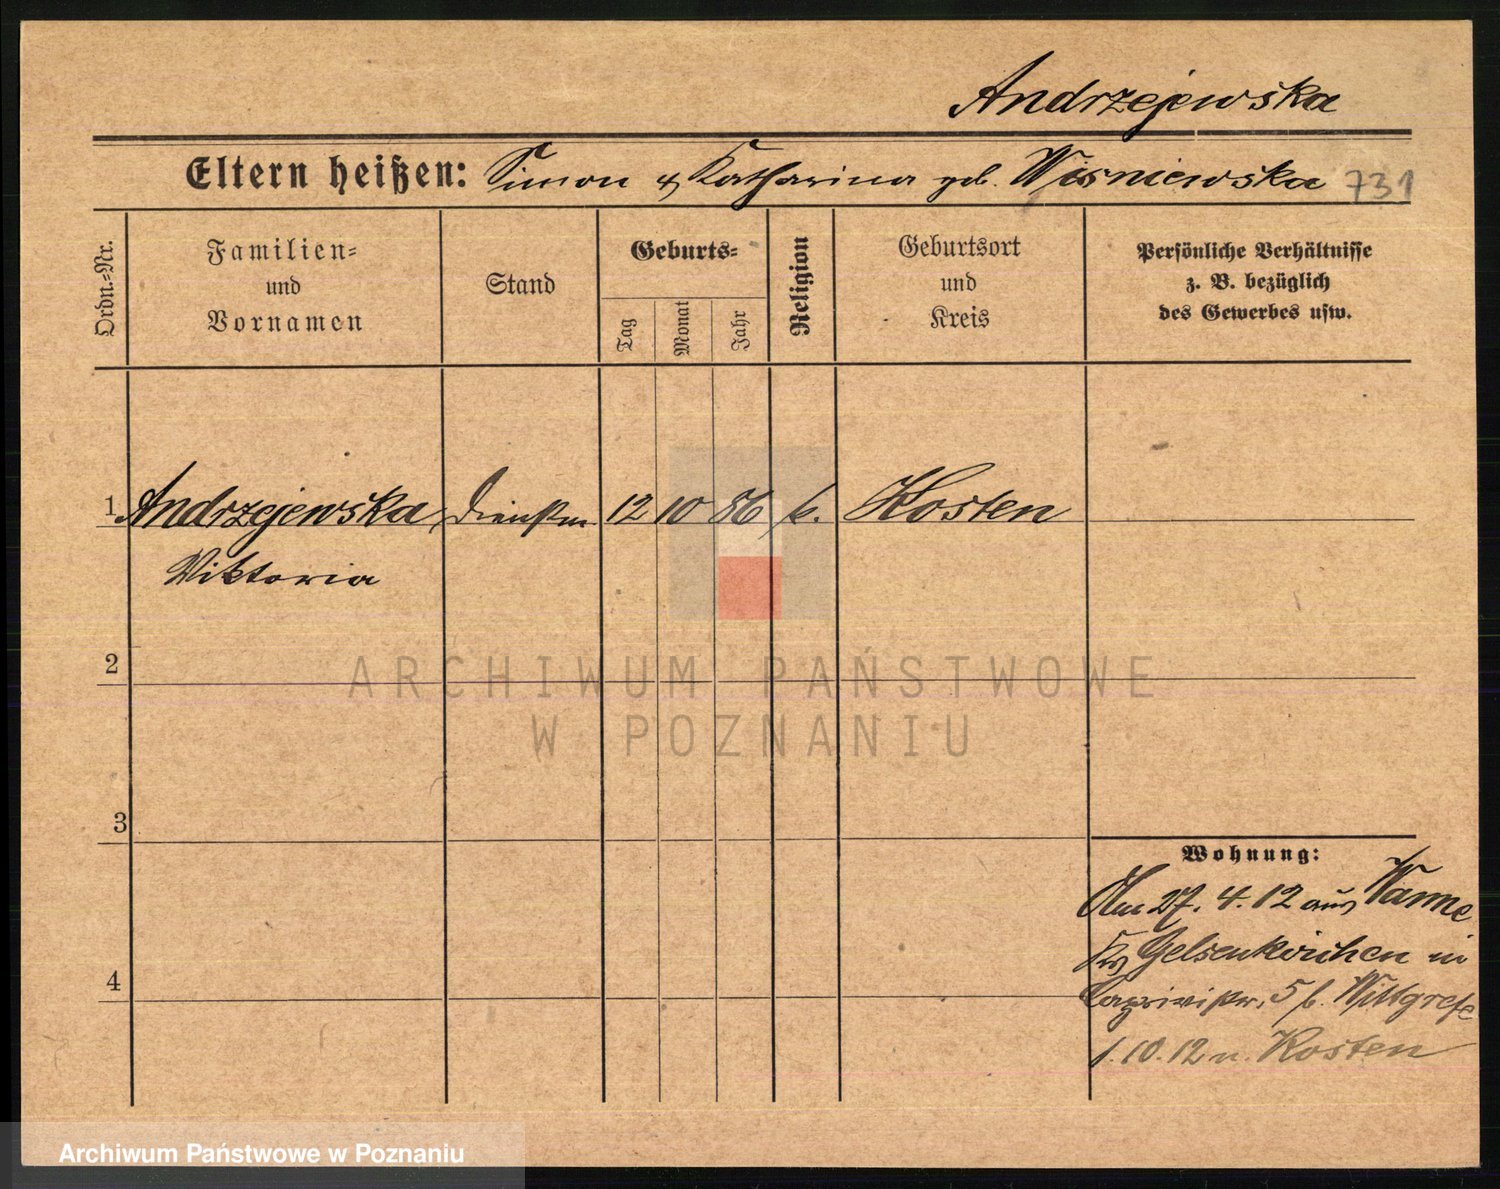 Andrzejewska
Eltern heißen: Simon & Katharina geb. Wisniewska 731
Ordn.-Nr.
Familien-
und
Vornamen
Stand
Geburts-
Tag
Monat
Jahr
Religion
Geburtsort
und
Kreis
Persönliche Verhältnisse
z. B. bezüglich
des Gewerbes usw.
1 Andrzejewska, Dienstm. 12 10 86 k. Kosten
Viktoria
2
3
4
Wohnung:
Am 27. 4. 12 aus Wanne
Krs Gelsenkirchen in
Caprivistr. 5 b. Wittgrefe
1. 10. 12 n. Kosten
ARCHIWUM PAŃSTWOWE
W POZNANIU
Archiwum Państwowe w Poznaniu